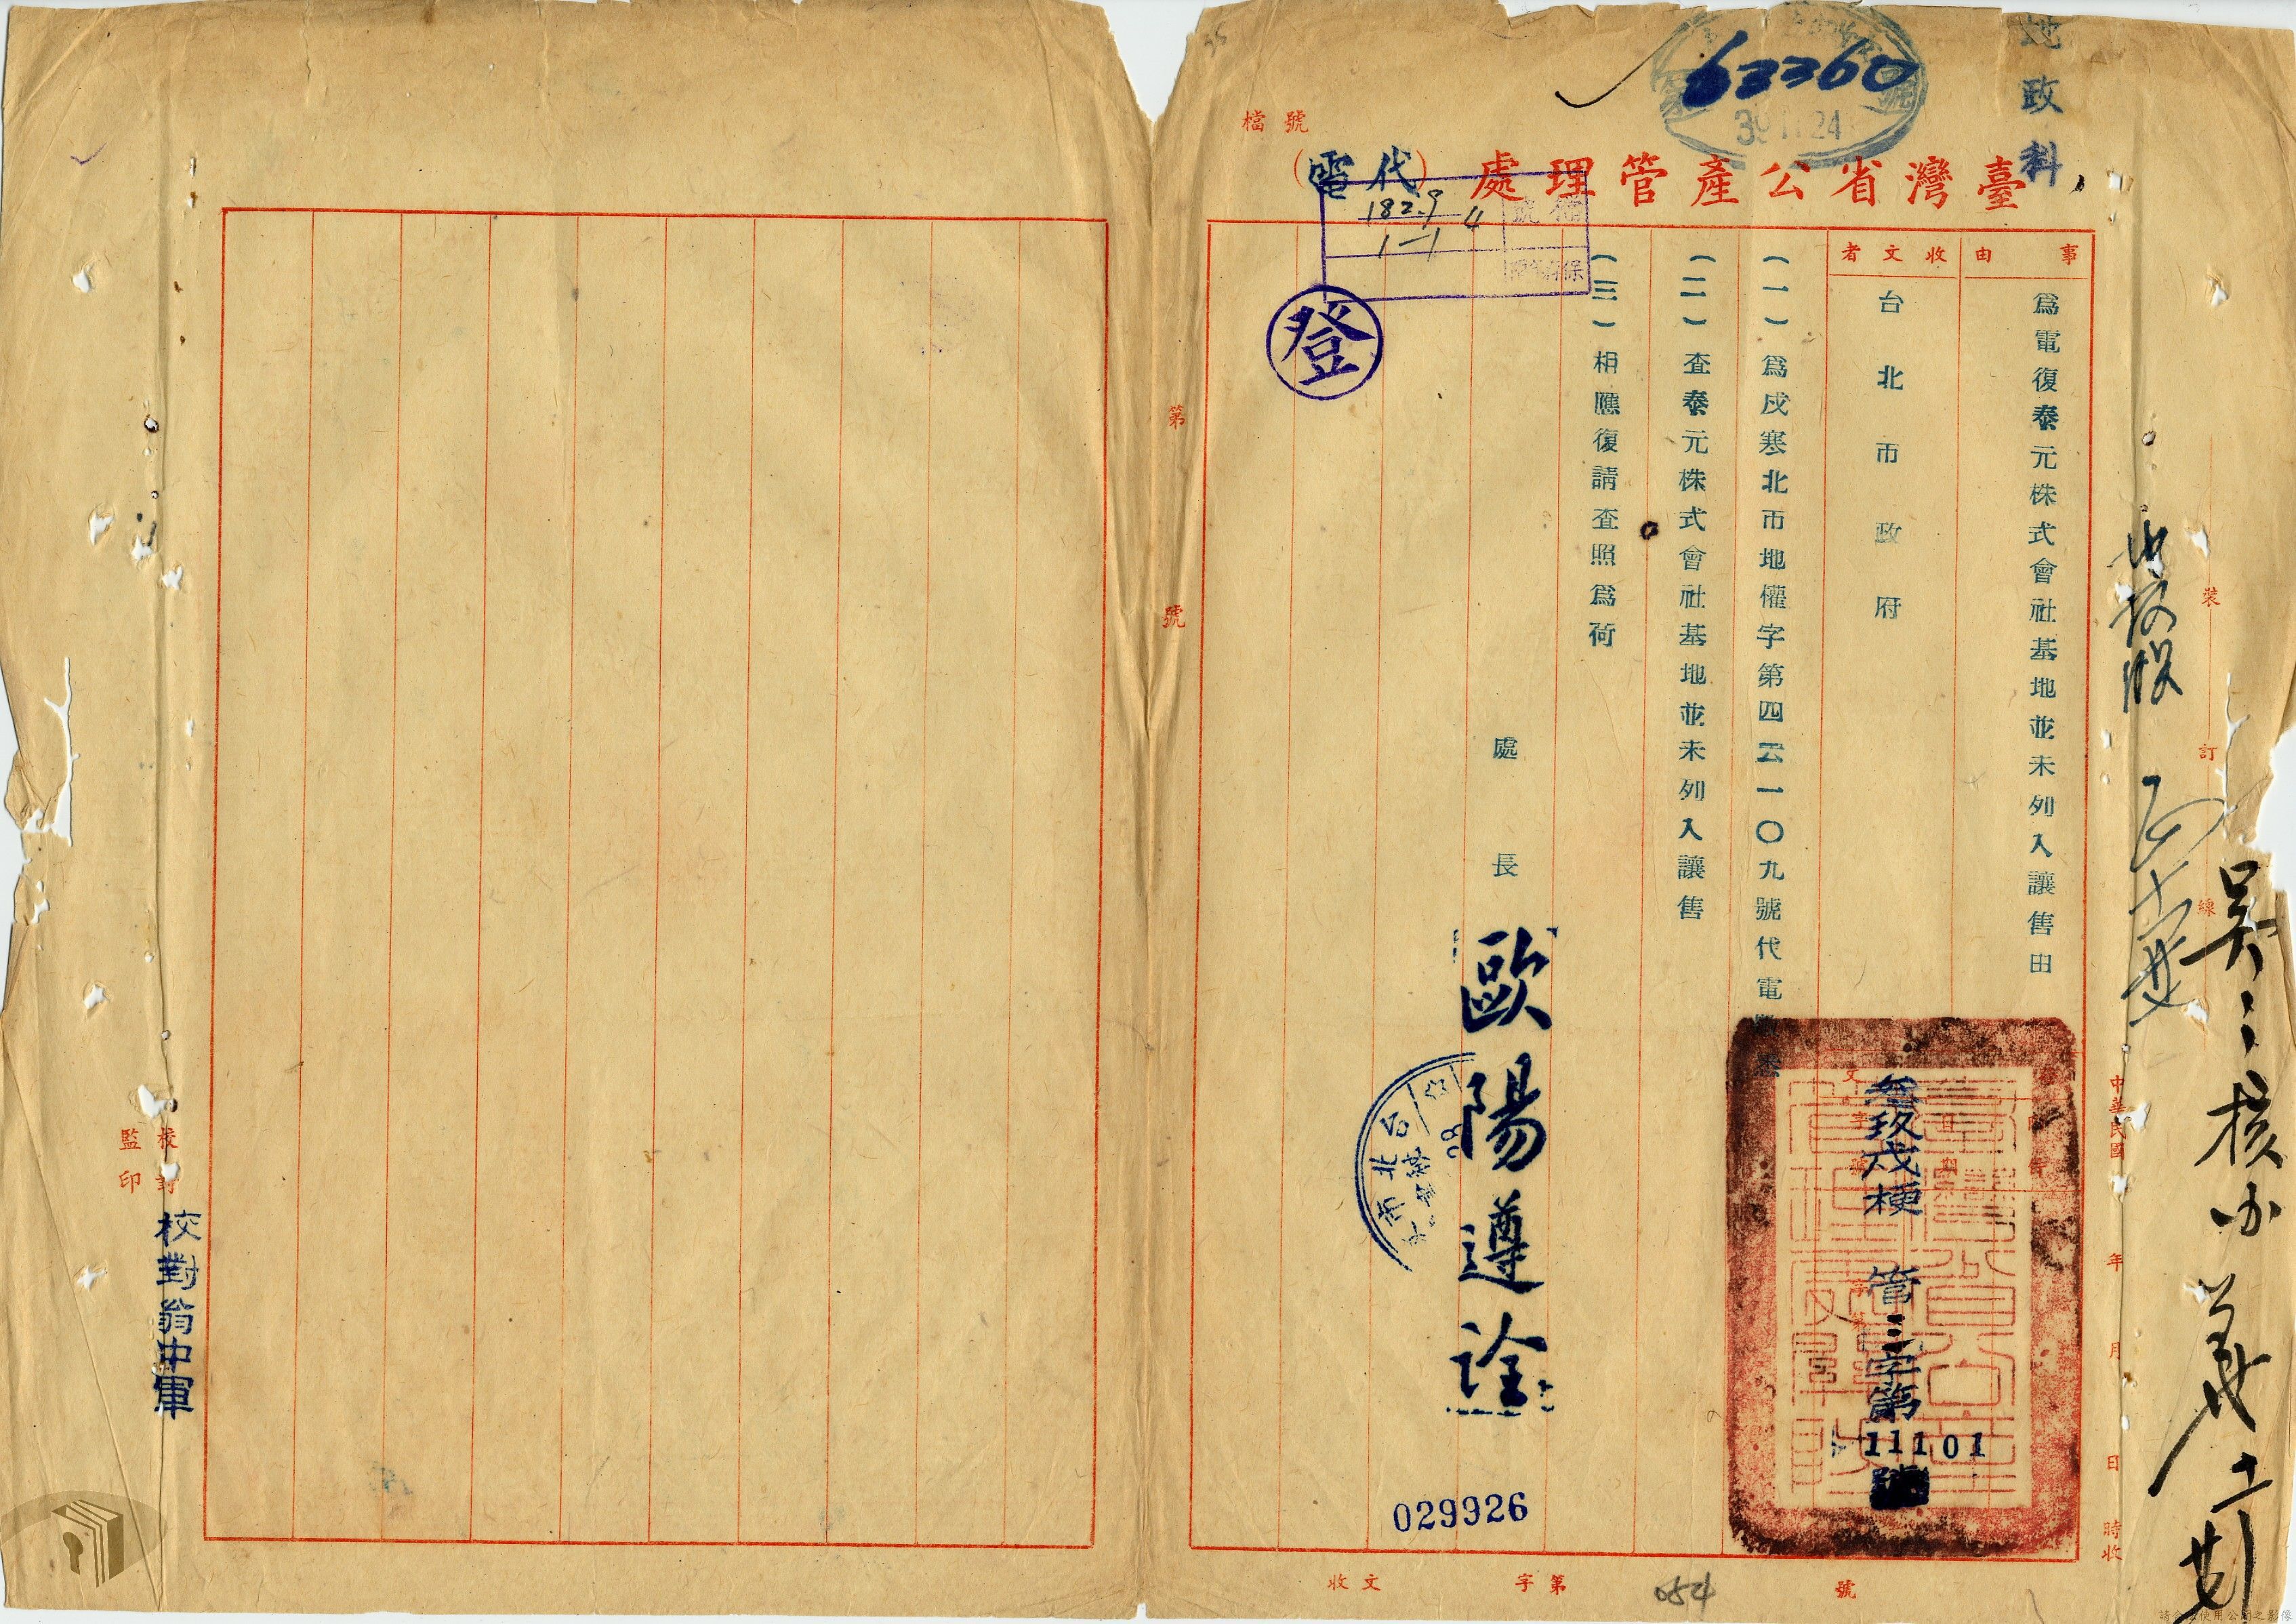 地政科
63360
39 11 24
檔號
臺灣省公產管理處(代電)
182.9
1-1
檔號
登
事由
為電復泰元株式會社基地並未列入讓售由
收文者
台北市政府
(一)為戌寒北市地權字第四二一〇九號代電
(二)查泰元株式會社基地並未列入讓售
(三)相應復請查照為荷
處長
歐陽遵詮
叁玖戌梗
管三字第
11101
號
台北市
029926
收文
字第
054
號
裝
訂
線
中華民國
年
月
日
時收
第
號
校對
監印
校對翁中軍